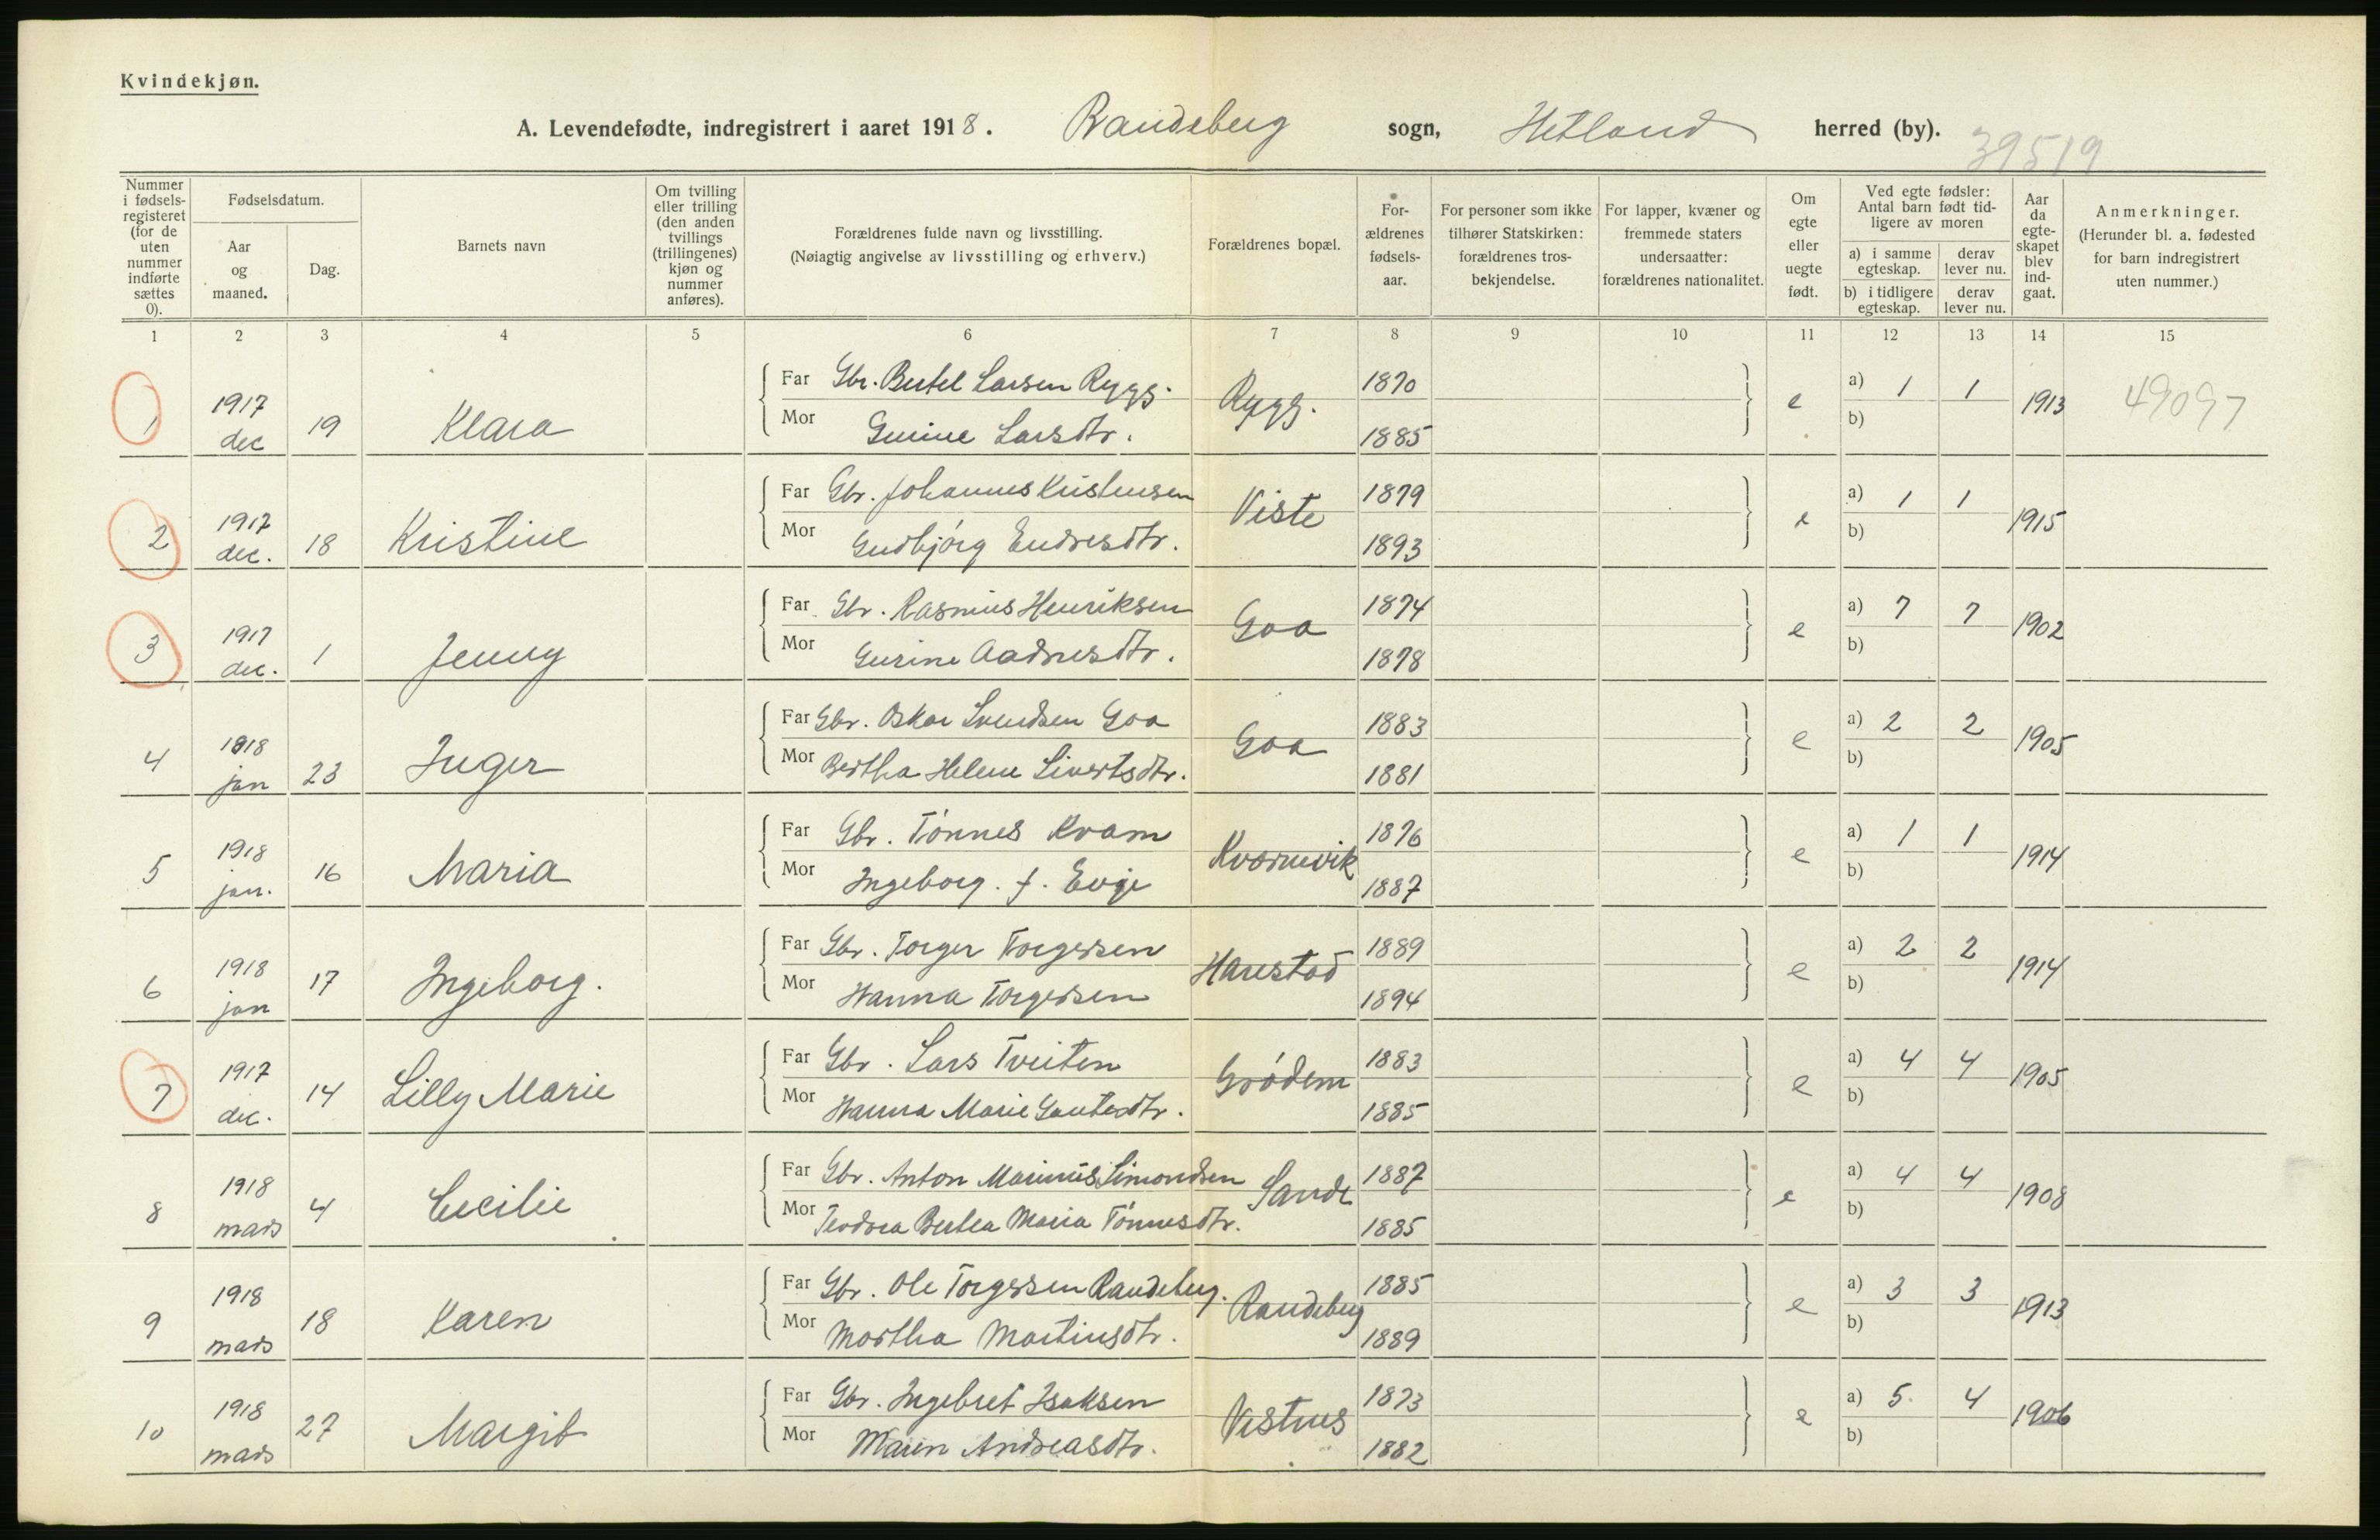 Kvindekjøn.
A. Levendefødte, indregistrert i aaret 1918. Randeberg sogn, Hetland herred (by).
39519
Nummer i fødsels-registeret (for de uten nummer indførte sættes 0).
Fødselsdatum.
Aar og maaned.
Dag.
Barnets navn
Om tvilling eller trilling (den anden tvillings (trillingenes) kjøn og nummer anføres).
Forældrenes fulde navn og livsstilling.
(Nøiagtig angivelse av livsstilling og erhverv.)
Forældrenes bopæl.
For-ældrenes fødsels-aar.
For personer som ikke tilhører Statskirken: forældrenes tros-bekjendelse.
For lapper, kvæner og fremmede staters undersaatter: forældrenes nationalitet.
Om egte eller uegte født.
Ved egte fødsler: Antal barn født tid-ligere av moren
a) i samme egteskap.
derav lever nu.
b) i tidligere egteskap.
derav lever nu.
Aar da egte-skapet blev ind-gaat.
Anmerkninger.
(Herunder bl. a. fødested for barn indregistrert uten nummer.)
1 2 3 4 5 6 7 8 9 10 11 12 13 14 15
1 1917 dec 19 Klara Far Gbr. Bertel Larsen Rygg. Rygg. 1870 e a) 1 1 1913 49097
Mor Gurine Larsdtr. 1885 b)
2 1917 dec. 18 Kristine Far Gbr. Johannes Kristensen Viste 1879 e a) 1 1 1915
Mor Gudbjörg Endresdtr. 1893 b)
3 1917 dec. 1 Jenny Far Gbr. Rasmus Henriksen Goa 1874 e a) 7 7 1902
Mor Gurine Aadnesdtr. 1878 b)
4 1918 jan 23 Inger Far Gbr. Oskar Svendsen Goa Goa 1883 e a) 2 2 1905
Mor Bertha Helene Sivertsdtr. 1881 b)
5 1918 jan. 16 Maria Far Gbr. Tönnes Kvam Kværnevik 1876 e a) 1 1 1914
Mor Ingeborg. f. Evje 1887 b)
6 1918 jan 17 Ingeborg. Far Gbr. Torger Torgersen Harestad 1889 e a) 2 2 1914
Mor Hanna Torgersen 1894 b)
7 1917 dec. 14 Lilly Marie Far Gbr. Lars Tveiten Grödem 1883 e a) 4 4 1905
Mor Hanna Marie Gautesdtr. 1885 b)
8 1918 mars 4 Cecilie Far Gbr. Anton Marinus Simondsen Sande 1887 e a) 4 4 1908
Mor Teodora Bertea Maria Tönnesdtr. 1885 b)
9 1918 mars 18 Karen Far Gbr. Ole Torgersen Randeberg. Randeberg 1885 e a) 3 3 1913
Mor Martha Martinsdtr. 1889 b)
10 1918 mars 27 Margit Far Gbr. Ingebret Isaksen Vistnes 1873 e a) 5. 4 1906
Mor Maren Andreasdtr. 1882 b)